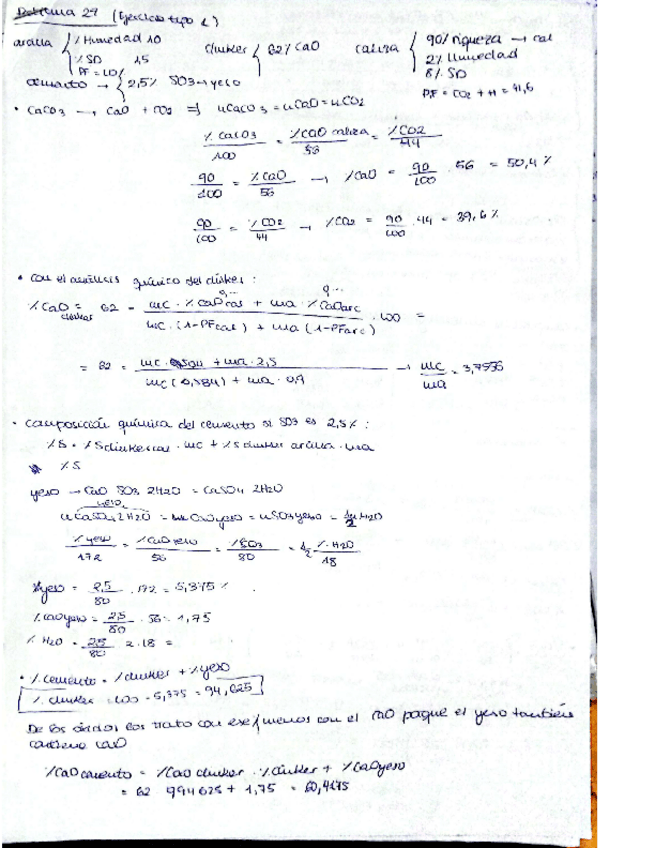 Problema 29 (Ejercicio tipo L)
arcilla { % Humedad 10
% SD 45
PF = 10%
clinker { 62% CaO
caliza { 90% riqueza → cal
2% Humedad
8% SD
PF = CO2 + H = 41,6
cemento → { 2,5% SO3 → yeso
• CaCO3 → CaO + CO2 ⇒ nCaCO3 = nCaO = nCO2
% CaCO3 / 100 = % CaO caliza / 56 = % CO2 / 44
90 / 100 = % CaO / 56 → % CaO = 90 / 100 · 56 = 50,4 %
90 / 100 = % CO2 / 44 → % CO2 = 90 / 100 · 44 = 39,6 %
• Con el análisis químico del clinker :
% CaO clinker = 62 = mc · % CaO cal + ma · % CaO arc / mc · (1-PFcal) + ma (1-PFarc) · 100 =
= 62 = mc · 0,504 + ma · 2,5 / mc (0,584) + ma · 0,9 → mc / ma = 3,7556
• Composición química del cemento si SO3 es 2,5% :
% S = % S clinker cal · mc + % S clinker arcilla · ma
% S
yeso → CaO SO3 2H2O = CaSO4 2H2O
yeso
nCaSO4 2H2O = nCaO yeso = nSO3 yeso = 1/2 nH2O
% yeso / 172 = % CaO yeso / 56 = % SO3 / 80 = 1/2 % H2O / 18
% yeso = 2,5 / 80 · 172 = 5,375 %
% CaO yeso = 2,5 / 80 · 56 = 1,75
% H2O = 2,5 / 80 2 · 18 =
• % cemento = % clinker + % yeso
% clinker = 100 - 5,375 = 94,625
De los óxidos los trato con ese % menos con el CaO porque el yeso también
contiene CaO
% CaO cemento = % CaO clinker · % clinker + % CaO yeso
= 62 · 0,94625 + 1,75 = 60,4175